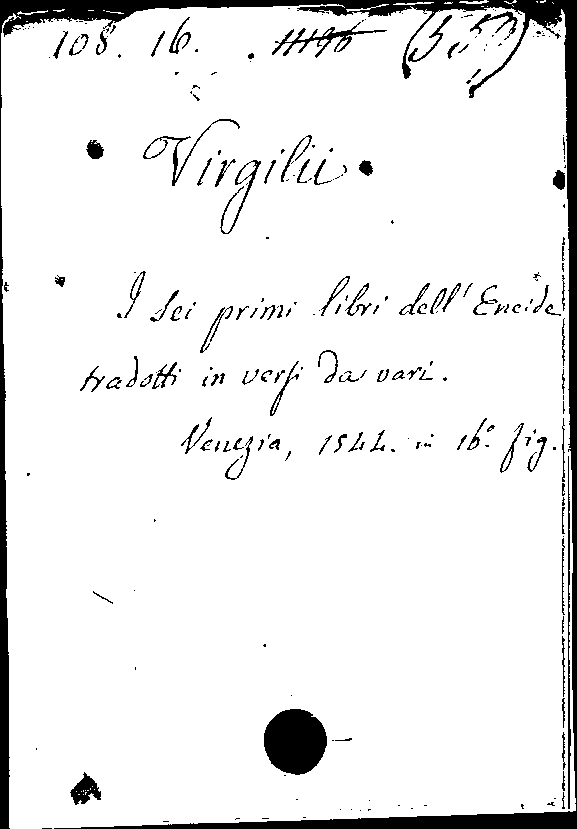 108. 16. . 11196
Virgilii
I sei primi libri dell' Eneide
tradotti in versi da vari.
Venezia, 1544. in 16.° fig.